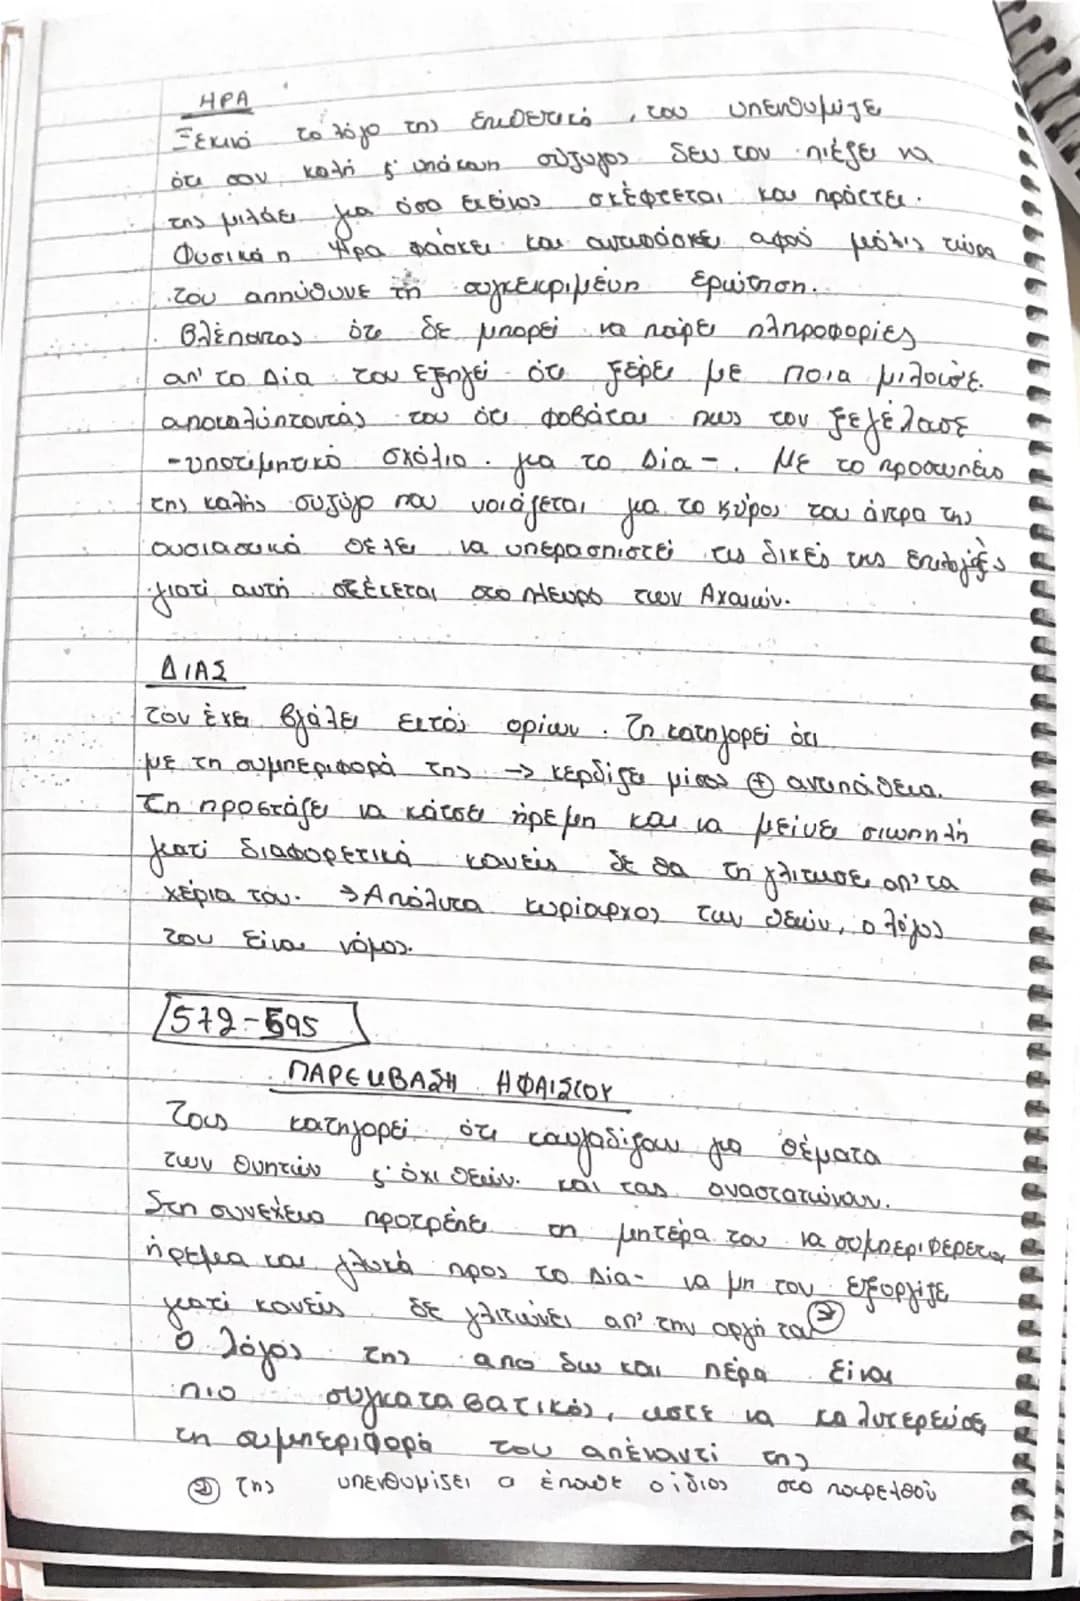 ΗΡΑ
Ξεκινά το λόγο της επιθετικά, του υπενθυμίζε
ότι σαν καλή ς' υπάκουη σύζυγος δεν τον πιέζει να
της μιλάει για όσα εκείνος σκέφτεται και πράττει.
Φυσικά η Ήρα φάσκει και αντιφάσκει αφού μόλις τώρα
του απηύθυνε τη συγκεκριμένη ερώτηση.
Βλέποντας ότι δε μπορεί να πάρει πληροφορίες
απ' το Δία του εξηγεί ότι ξέρει με ποια μιλούσε
αποκαλύπτοντάς του ότι φοβάται πως τον ξεγέλασε
-υποτιμητικό σχόλιο για το Δία-. Με το προσωπείο
της καλής συζύγο που νοιάζεται για το κύρος του άντρα της
ουσιαστικά θέλει να υπερασπιστεί τις δικές της επιλογές
γιατί αυτή στέκεται στο πλευρό των Αχαιών.
ΔΙΑΣ
Τον έχει βγάλει εκτός ορίων. Τη κατηγορεί ότι
με τη συμπεριφορά της → κερδίζει μίσος ⊕ αντιπάθεια.
Τη προστάζει να κάτσει ήρεμη και να μείνει σιωπηλή
γιατί διαφορετικά κανείς δε θα τη γλιτώσει απ' τα
χέρια του. → Απόλυτα κυρίαρχος των θεών, ο λόγος
του είναι νόμος.
572-595
ΠΑΡΕΜΒΑΣΗ ΗΦΑΙΣΤΟΥ
Τους κατηγορεί ότι καυγαδίζουν για θέματα
των θνητών ς' όχι θεών. και τους αναστατώνουν.
Στη συνέχεια προτρέπει τη μητέρα του να συμπεριφέρεται
ήρεμα και γλυκά προς το Δία- να μη τον εξοργίζε
γιατί κανείς δε γλιτώνει απ' την οργή του ②
Ο λόγος της απο δω και πέρα είναι
πιο συγκαταβατικός, ώστε να καλυτερεύσει
τη συμπεριφορά του απέναντί της
② Της υπενθυμίσει α έπαθε ο ίδιος στο παρελθόν